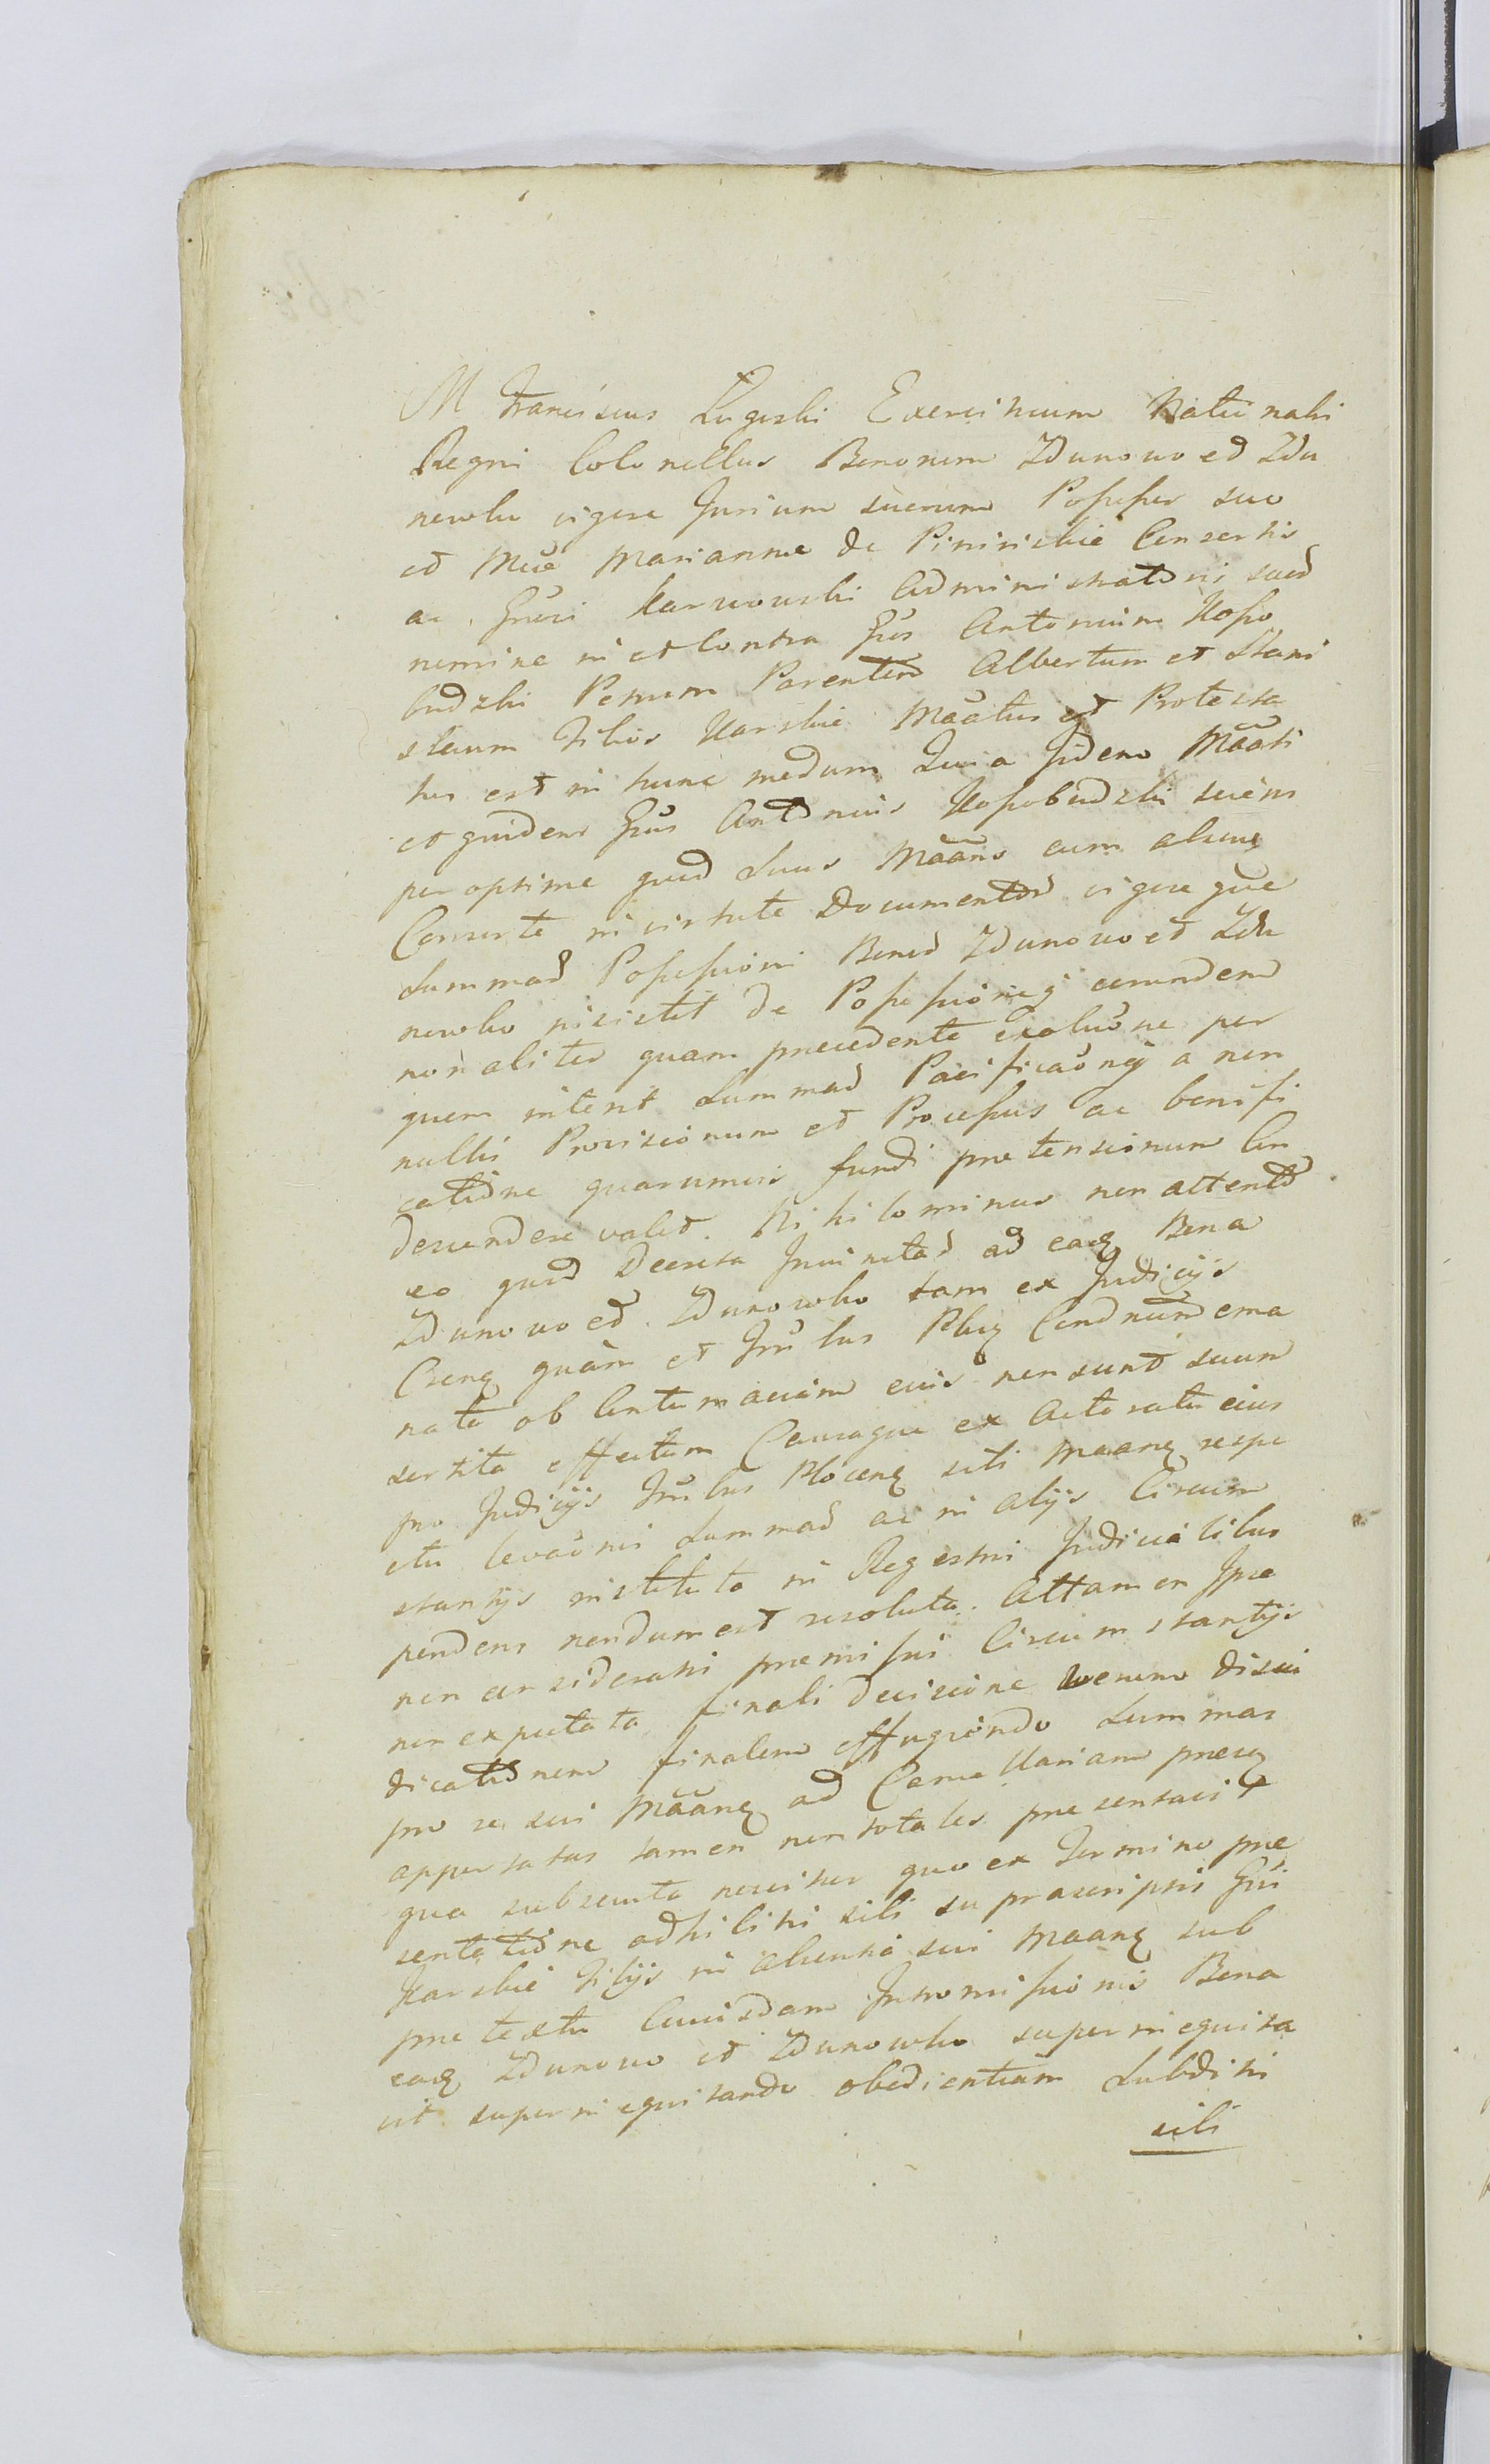 M Franciscus Zugeski Exercituum Natio nalis
Regni Colonellus Bonorum Zdunowo et Zdu
nowko vigore Jurium suorum Possessor suo
et Mcae Mariannae de Piniriskie Consortis
ac Grosi Karwowski Administratoris suod
nomine in et contra Gsos Antonium Koso
budzki Patrum Parentem Albertum et Stani
slaum Filios Karskie Maatus et Protesta
tus est in hunc modum Quia Iidem Maati
et quidem Gsus Antonius Kosobudzki sciens
per optime quod Suus Maans cum alsuus
Consorte in virtute Documentor vigore quae
Summad Possessioni Bonor Zdunowo et Zdu
nowko insistit de Possessioneq eorundem
non aliter quam praecedente exolutione per
quem interit Summad Pacificationeq a non
nullis Provisionum et Processus ac bonifi
catione quarumvis fundi praetensionum Con
descendere valet. Nihilominus non attento
eo quod Decreta Invinctad ad eadq Bona
Zdunowo et Zdunowko tam ex Judicijs
Czeng quam et Trilus Plug Condnundema
nata ob Contumaciam eius non sunt suum
sortita effectum Causaque ex Actoratu eius
pro Judicijs Trilus Ploceng sibi Maang respe
ctu levationis Summad ac in alijs Circum
stantijs instituta in Regestris Judicialibus
pendens nondum est resoluta. Attamen Ipse
non consideratis praemissis Circumstantijs
non expectata finali decisione verum disiu
dicationem finalem effugiendo Summas
pro se sui Maang ad Cancellariam praesq
apportatas tamen non totales praesentavit
qua subsecuta nescitur quo ex Termino prae
sentatione adhibitis sibi supra scriptis Gsis
Karskie Filijs in absentia sui Maang sub
praetextu Cuiusdam Intromissionis Bona
eadq Zdunowo et Zdunowko superinequita
vit superinequitando obedientiam Subditis
sibi